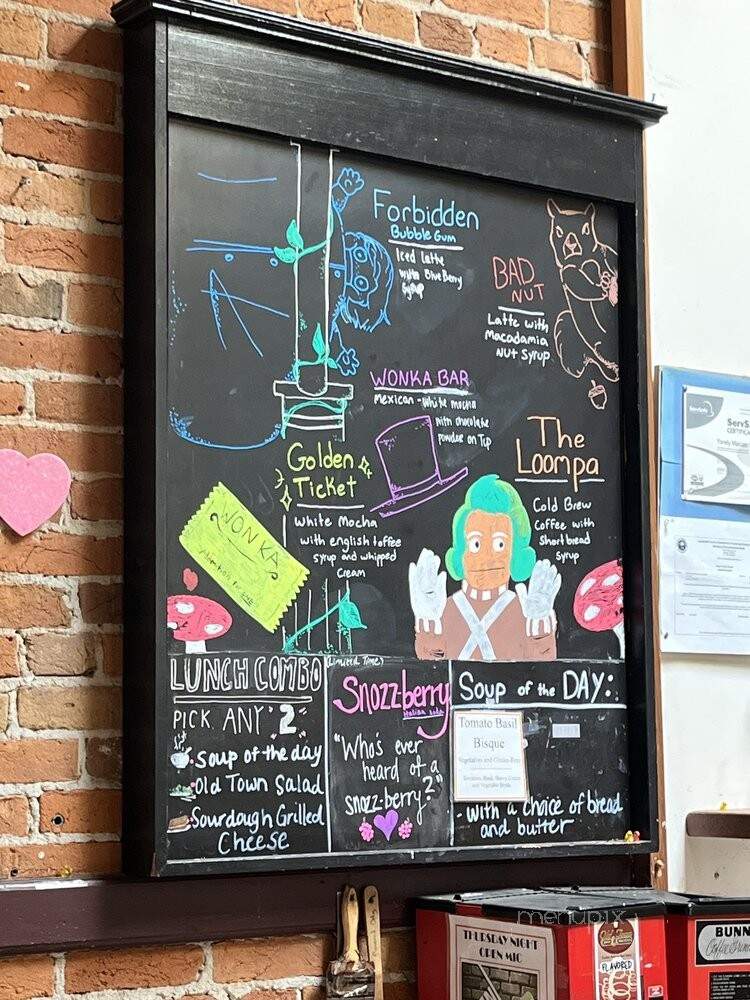 Forbidden
Bubble Gum
Iced latte
with Blueberry
Syrup
BAD
NUT
Latte with
Macadamia
Nut Syrup
WONKA BAR
Mexican - White mocha
with chocolate
powder on Top
Golden
Ticket
White Mocha
with english toffee
syrup and whipped
cream
The
Loompa
Cold Brew
Coffee with
Shortbread
Syrup
WONKA
LUNCH COMBO
PICK ANY "2"
Soup of the day
Old Town Salad
Sourdough Grilled
Cheese
Limited Time?
Snozz-berry
italian soda
"Who's ever
heard of a
snozz-berry?"
Soup of the DAY:
Tomato Basil
Bisque
Vegetarian and Gluten-Free
- With a choice of bread
and butter
ServSafe
CERTIFICA
menupix
THURSDAY NIGHT
OPEN MIC
FLAVORED
BUNN